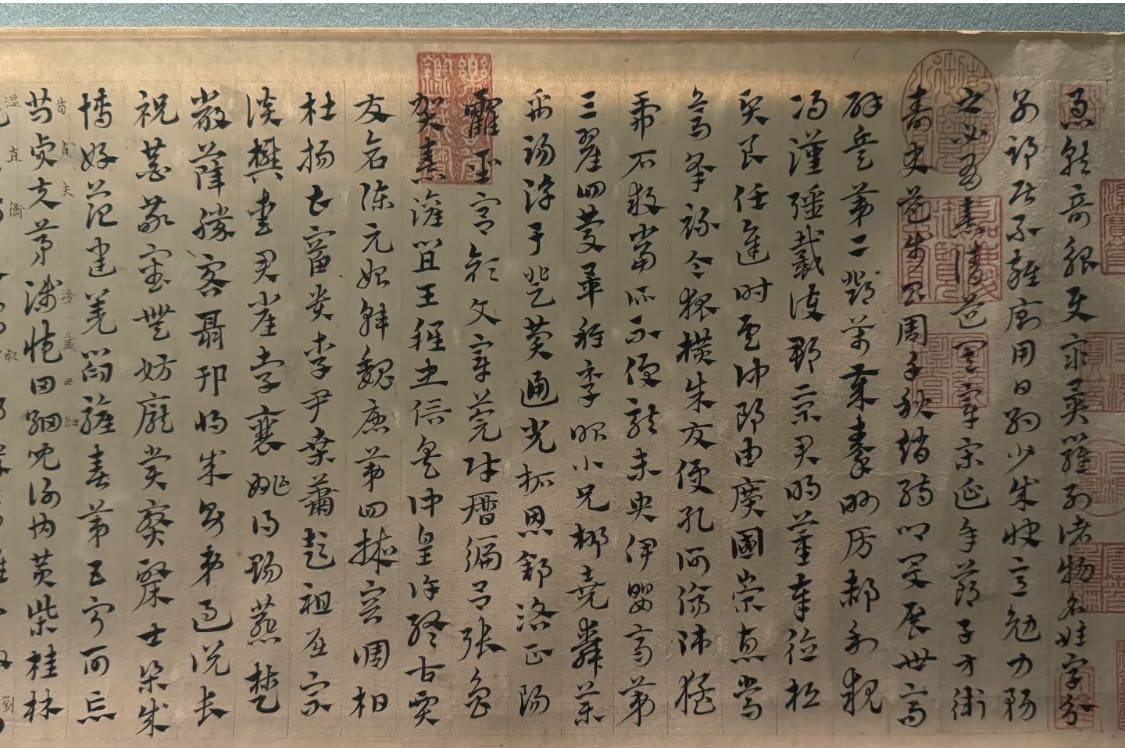 急就奇觚與衆異羅列諸物名姓字分
別部居不雜廁用日約少誠快意勉力務
之必有憙請道其章宋延年鄭子方衛
益壽史步昌周千秋趙孺卿爰展世高
辟兵第二鄧萬歲秦眇房郝利親
馮漢彊戴護郡景君明董奉德桓
賢良任逢時侯仲郎由廣國榮惠常
烏承祿令狐橫朱交便孔何傷師猛
虎石敢當所不侵龍未央伊嬰齊第
三翟回慶畢稚季昭小兄柳堯舜藥
禹湯淳于登費通光柘恩舒路正陽
霍聖宮顏文章莞財曆偏呂張魯
賀憙灌宜王程忠信吳仲皇許終古賈
友倉陳元始韓魏唐第四掖容調柏
杜楊曹富貴李尹桑蕭彭祖屈宗
談樊愛君崔孝襄姚得賜燕楚
嚴薛勝客聶邗將求男弟過說長
祝恭敬審毋妨龐賞贛來士梁成
博好范建羌閻驩喜第五寧可忘
苟貞夫茅涉臧田細兒謝內黃柴桂林